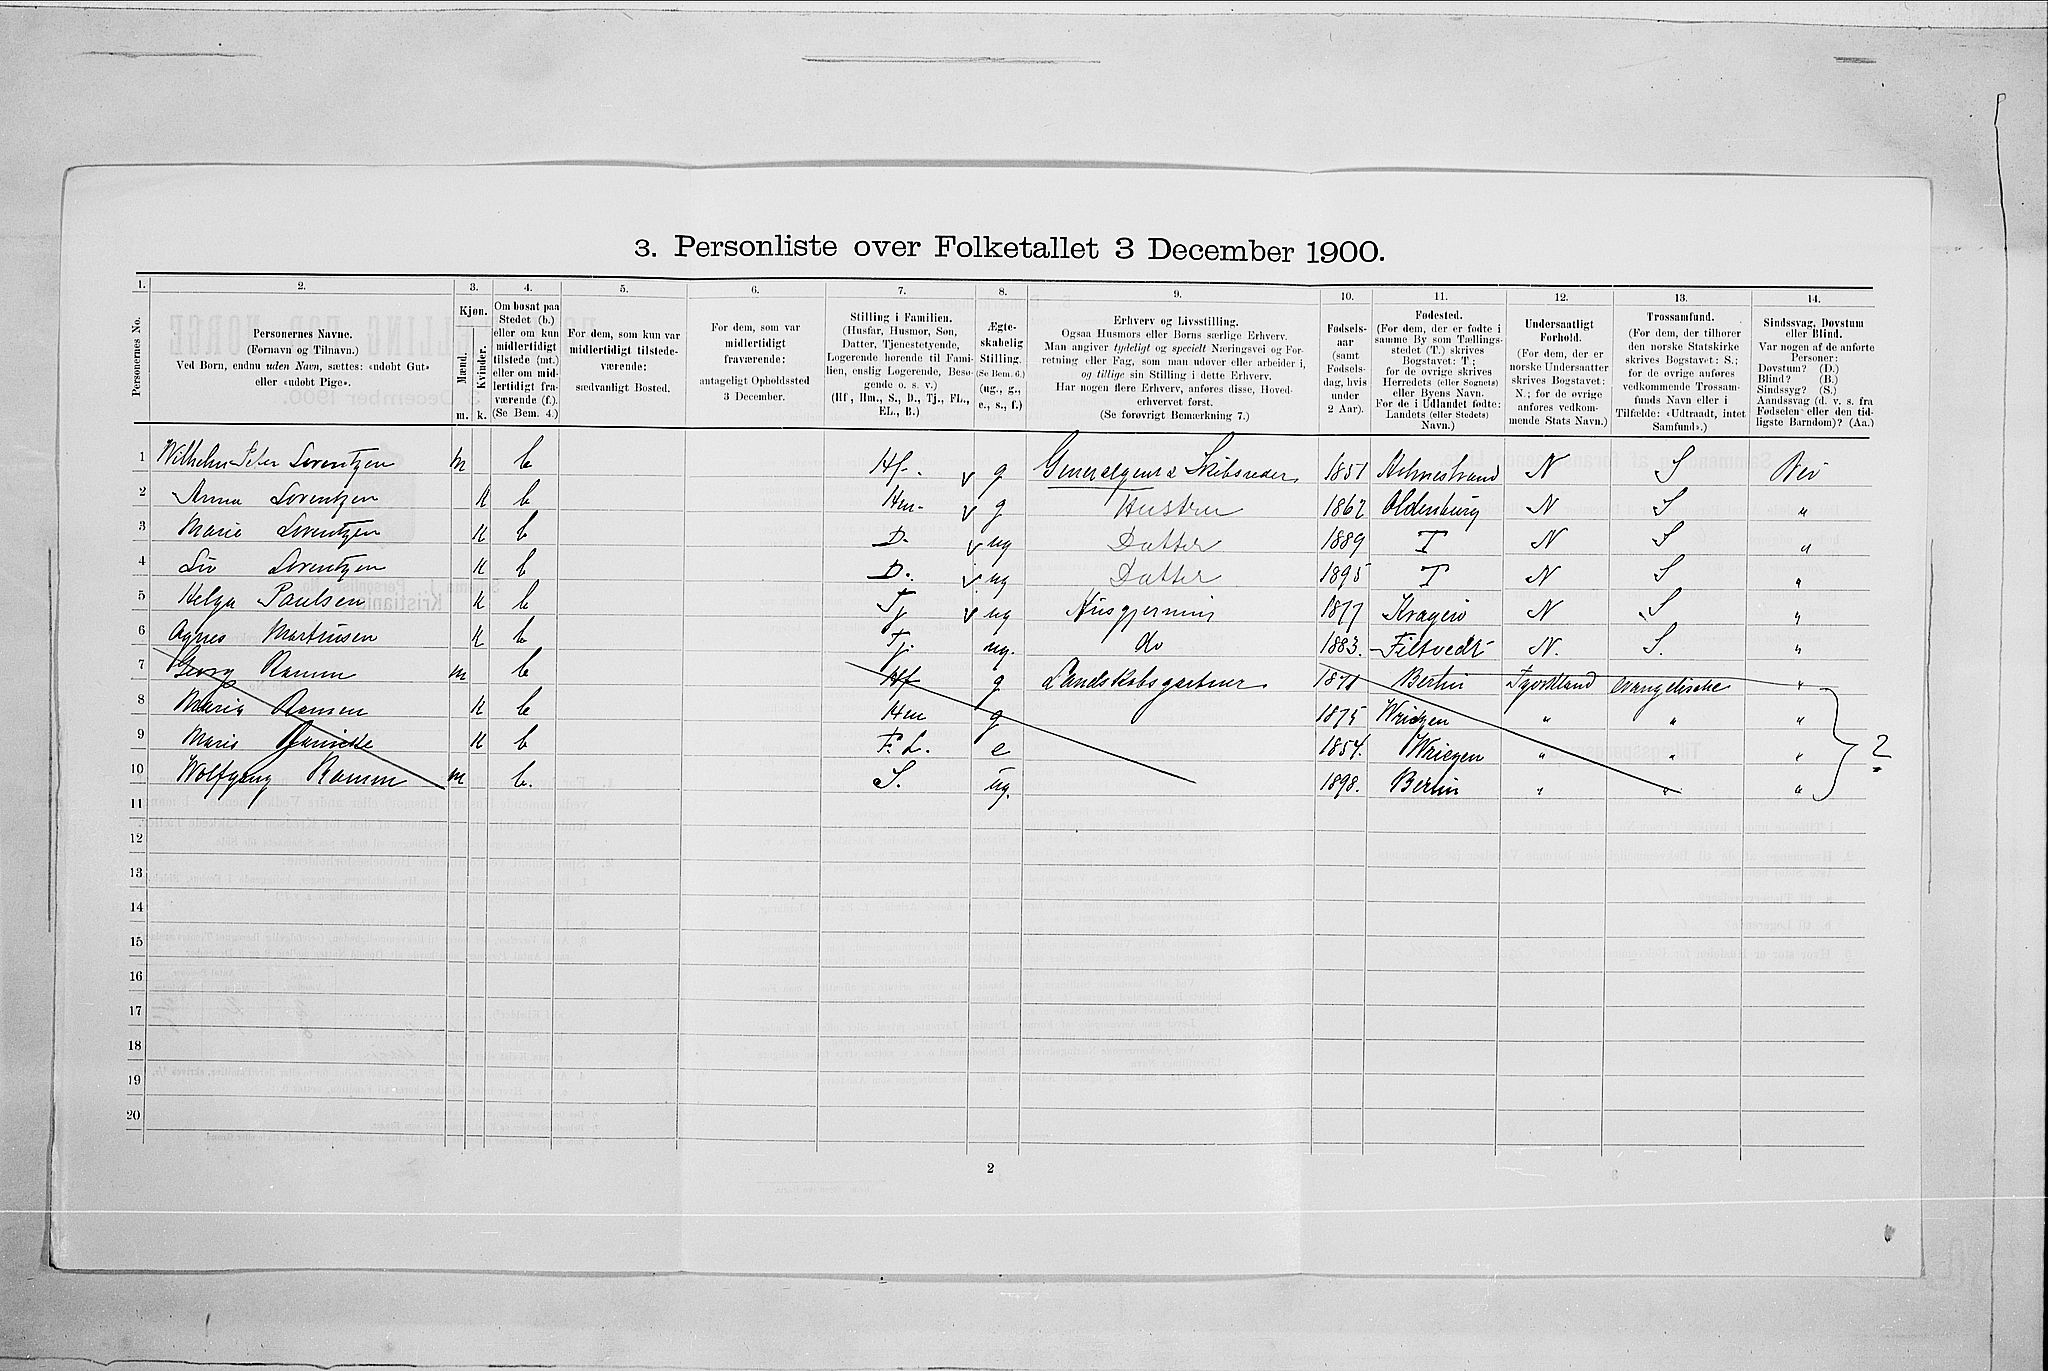 3. Personliste over Folketallet 3 December 1900.
1. 2. 3. 4. 5. 6. 7. 8. 9. 10. 11. 12. 13. 14.
Personernes No.
Personernes Navne.
(Fornavn og Tilnavn.)
Ved Børn, endnu uden Navn, sættes: «udøbt Gut»
eller «udøbt Pige».
Kjøn.
Mænd.
Kvinder.
m. k.
Om bosat paa
Stedet (b.)
eller om kun
midlertidigt
tilstede (mt.)
eller om mid-
lertidigt fra-
værende (f.).
(Se Bem. 4.)
For dem, som kun var
midlertidigt tilstede-
værende:
sædvanligt Bosted.
For dem, som var
midlertidigt
fraværende:
antageligt Opholdssted
3 December.
Stilling i Familien.
(Husfar, Husmor, Søn,
Datter, Tjenestetyende,
Logerende hørende til Fami-
lien, enslig Logerende, Besø-
gende o. s. v.)
(Hf., Hm., S., D., Tj., FL.,
EL., B.)
Ægte-
skabelig
Stilling.
(Se Bem. 6.)
(ug., g.,
e., s., f.)
Erhverv og Livsstilling.
Ogsaa Husmors eller Børns særlige Erhverv.
Man angiver tydeligt og specielt Næringsvei og For-
retning eller Fag, som man udøver eller arbeider i,
og tillige sin Stilling i dette Erhverv.
Har nogen flere Erhverv, anføres disse, Hoved-
erhvervet først.
(Se forøvrigt Bemærkning 7.)
Fødsels-
aar
(samt
Fødsels-
dag, hvis
under
2 Aar).
Fødested.
(For dem, der er fødte i
samme By som Tællings-
stedet (T.) skrives
Bogstavet: T;
for de øvrige skrives
Herredets (eller Sognets)
eller Byens Navn.
For de i Udlandet fødte:
Landets (eller Stedets)
Navn.)
Undersaatligt
Forhold.
(For dem, der er
norske Undersaatter
skrives Bogstavet:
N.; for de øvrige
anføres vedkom-
mende Stats Navn.)
Trossamfund.
(For dem, der tilhører
den norske Statskirke
skrives Bogstavet: S.;
for de øvrige anføres
vedkommende Trossam-
funds Navn eller i
Tilfælde: «Udtraadt, intet
Samfund».)
Sindssvag, Døvstum
eller Blind.
Var nogen af de anførte
Personer:
Døvstum? (D.)
Blind? (B.)
Sindssyg? (S.)
Aandssvag (d. v. s. fra
Fødselen eller den tid-
ligste Barndom)? (Aa.)
1 Wilhelm Peter Lorentzen m b Hf. v g Generalagent & Skibsreder 1851 Holmestrand N S Nei
2 Anna Lorentzen K b Hm. v g Hustru 1862 Oldenburg N S "
3 Marie Lorentzen K b D. v ug Datter 1889 T N S "
4 Liv Lorentzen K b D. v ug Datter 1895 T N S "
5 Helga Paulsen K b Tj v ug Husgjerning 1877 Kragerø N S "
6 Agnes Martinsen K b Tj. ug. do 1883. Filtvedt N. S. "
7 Georg m b Hf g Landskabsgartner 1871 Berlin Tyskland evangeliske "
8 Maria K b Hm g 1875 Wriezen " " "
9 Marie K b F. L. e 1854. Wriezen " " " ?
10 Wolfgang m b. S. ug. 1898. Berlin " " "
11
12
13
14
15
16
17
18
19
20
2